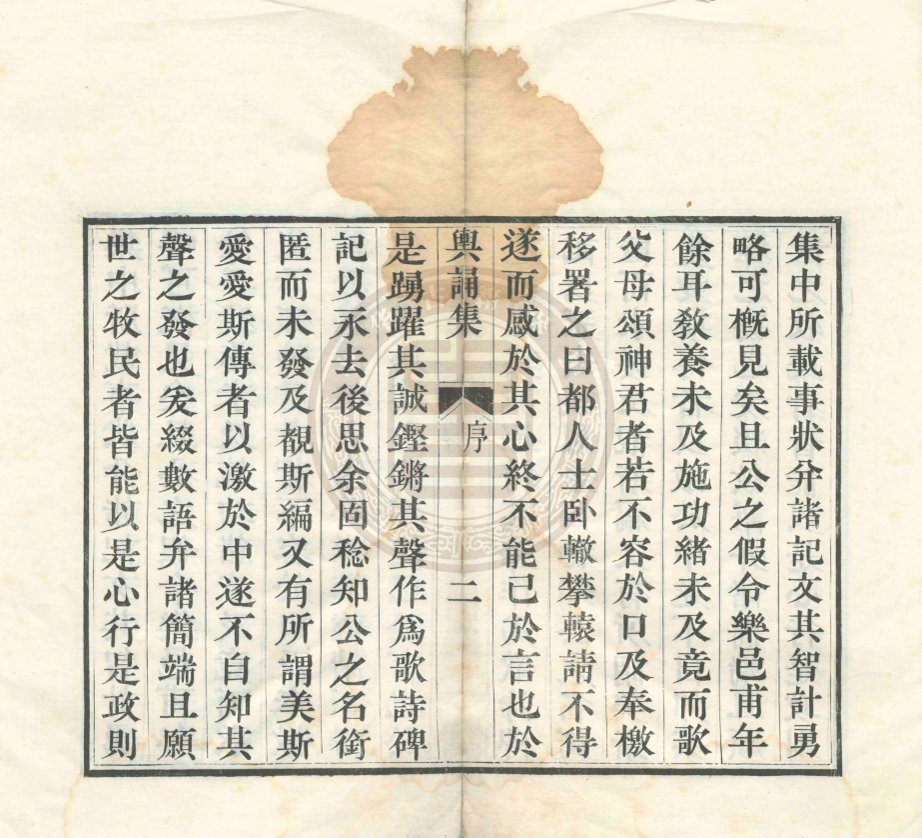 集中所載事狀弁諸記文其智計勇
略可槪見矣且公之假令樂邑甫年
餘耳敎養未及施功緒未及竟而歌
父母頌神君者若不容於口及奉檄
移署之日都人士卧轍攀轅請不得
遂而感於其心終不能已於言也於
輿誦集 序 二
是踴躍其誠鏗鏘其聲作爲歌詩碑
記以永去後思余固稔知公之名銜
匿而未發及覩斯編又有所謂美斯
愛愛斯傳者以激於中遂不自知其
聲之發也爰綴數語弁諸簡端且願
世之牧民者皆能以是心行是政則